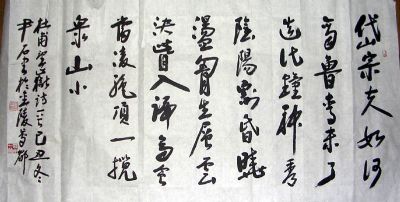 岱宗夫如何
齊魯青未了
造化鍾神秀
陰陽割昏曉
盪胸生層雲
決眥入歸鳥會
當凌絶頂一攬
衆山小
杜甫望嶽詩一首己丑冬
尹石書於金陵